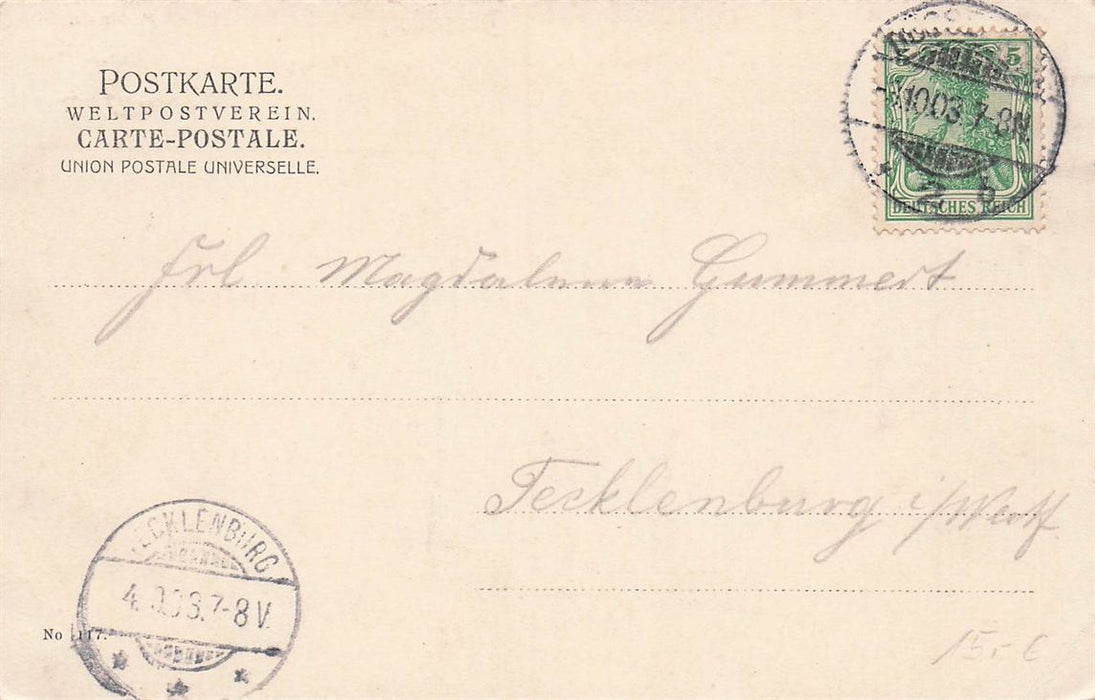 POSTKARTE.
WELTPOSTVEREIN.
CARTE-POSTALE.
UNION POSTALE UNIVERSELLE.
5
10.03. 7-8N.
DEUTSCHES REICH
Frl. Magdalena Gummert
Tecklenburg i/Westf.
TECKLENBURG
4. 7-8 V.
No 117.
15,- €